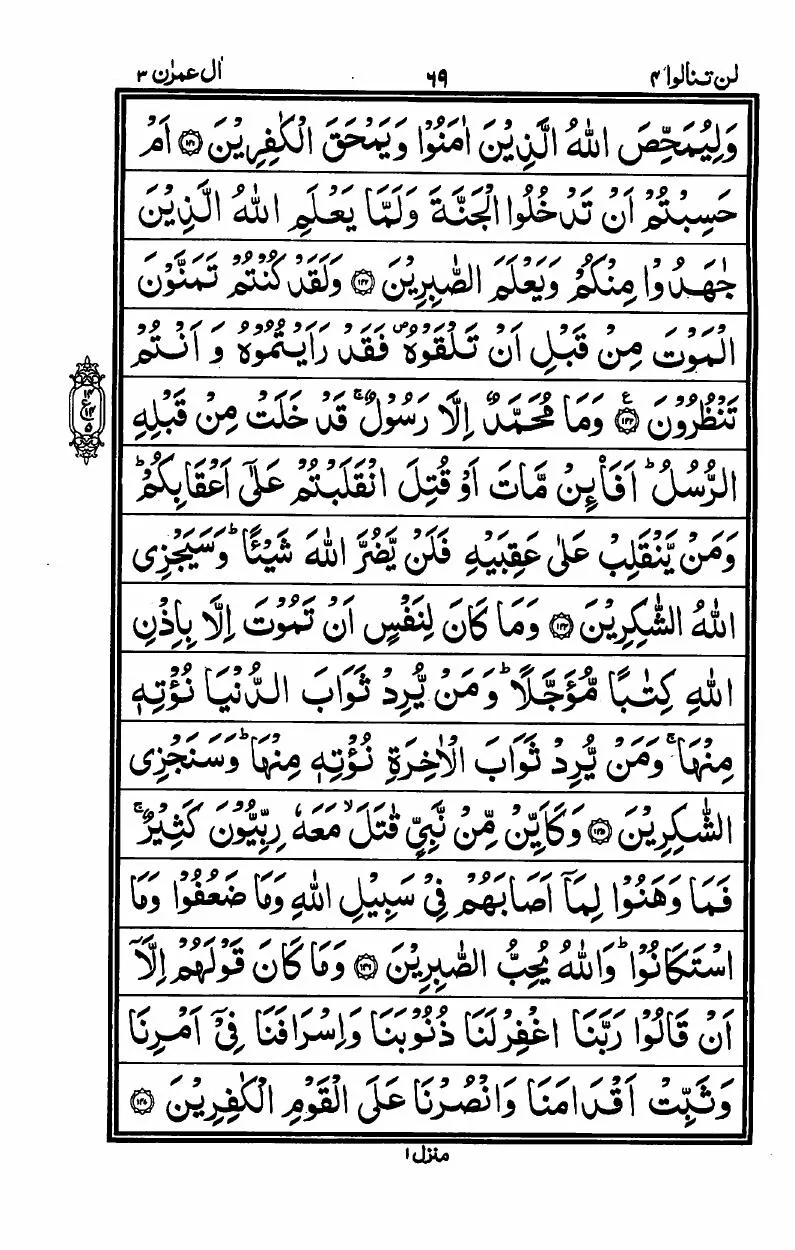 لن تنالوا ٤ ٦٩ اٰل عمرٰن ٣
وَلِيُمَحِّصَ اللّٰهُ الَّذِيْنَ اٰمَنُوْا وَيَمْحَقَ الْكٰفِرِيْنَ ﴿١٤١﴾ اَمْ
حَسِبْتُمْ اَنْ تَدْخُلُوا الْجَنَّةَ وَلَمَّا يَعْلَمِ اللّٰهُ الَّذِيْنَ
جٰهَدُوْا مِنْكُمْ وَيَعْلَمَ الصّٰبِرِيْنَ ﴿١٤٢﴾ وَلَقَدْ كُنْتُمْ تَمَنَّوْنَ
الْمَوْتَ مِنْ قَبْلِ اَنْ تَلْقَوْهُ ۖ فَقَدْ رَاَيْتُمُوْهُ وَ اَنْتُمْ
تَنْظُرُوْنَ ﴿١٤٣﴾ ع وَمَا مُحَمَّدٌ اِلَّا رَسُوْلٌ ۚ قَدْ خَلَتْ مِنْ قَبْلِهِ
١٤ ع ١٤ ٥
الرُّسُلُ ؕ اَفَا۟ئِنْ مَّاتَ اَوْ قُتِلَ انْقَلَبْتُمْ عَلٰٓى اَعْقَابِكُمْ ؕ
وَمَنْ يَّنْقَلِبْ عَلٰى عَقِبَيْهِ فَلَنْ يَّضُرَّ اللّٰهَ شَيْـًٔا ؕ وَسَيَجْزِى
اللّٰهُ الشّٰكِرِيْنَ ﴿١٤٤﴾ وَمَا كَانَ لِنَفْسٍ اَنْ تَمُوْتَ اِلَّا بِاِذْنِ
اللّٰهِ كِتٰبًا مُّؤَجَّلًا ؕ وَمَنْ يُّرِدْ ثَوَابَ الدُّنْيَا نُؤْتِهٖ
مِنْهَا ۚ وَمَنْ يُّرِدْ ثَوَابَ الْاٰخِرَةِ نُؤْتِهٖ مِنْهَا ؕ وَسَنَجْزِى
الشّٰكِرِيْنَ ﴿١٤٥﴾ وَكَاَيِّنْ مِّنْ نَّبِيٍّ قٰتَلَ ۙ مَعَهٗ رِبِّيُّوْنَ كَثِيْرٌ ۚ
فَمَا وَهَنُوْا لِمَاۤ اَصَابَهُمْ فِيْ سَبِيْلِ اللّٰهِ وَمَا ضَعُفُوْا وَمَا
اسْتَكَانُوْا ؕ وَاللّٰهُ يُحِبُّ الصّٰبِرِيْنَ ﴿١٤٦﴾ وَمَا كَانَ قَوْلَهُمْ اِلَّاۤ
اَنْ قَالُوْا رَبَّنَا اغْفِرْ لَنَا ذُنُوْبَنَا وَاِسْرَافَنَا فِيْۤ اَمْرِنَا
وَثَبِّتْ اَقْدَامَنَا وَانْصُرْنَا عَلَى الْقَوْمِ الْكٰفِرِيْنَ ﴿١٤٧﴾
منزل ١